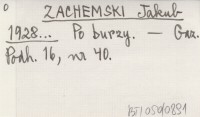 ZACHEMSKI Jakub
1928... Po burzy. — Gaz.
Podh. 16, nr 40.